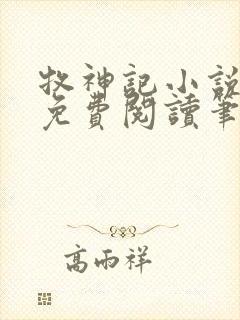 牧神記小說
免費閱讀筆
高雨祥